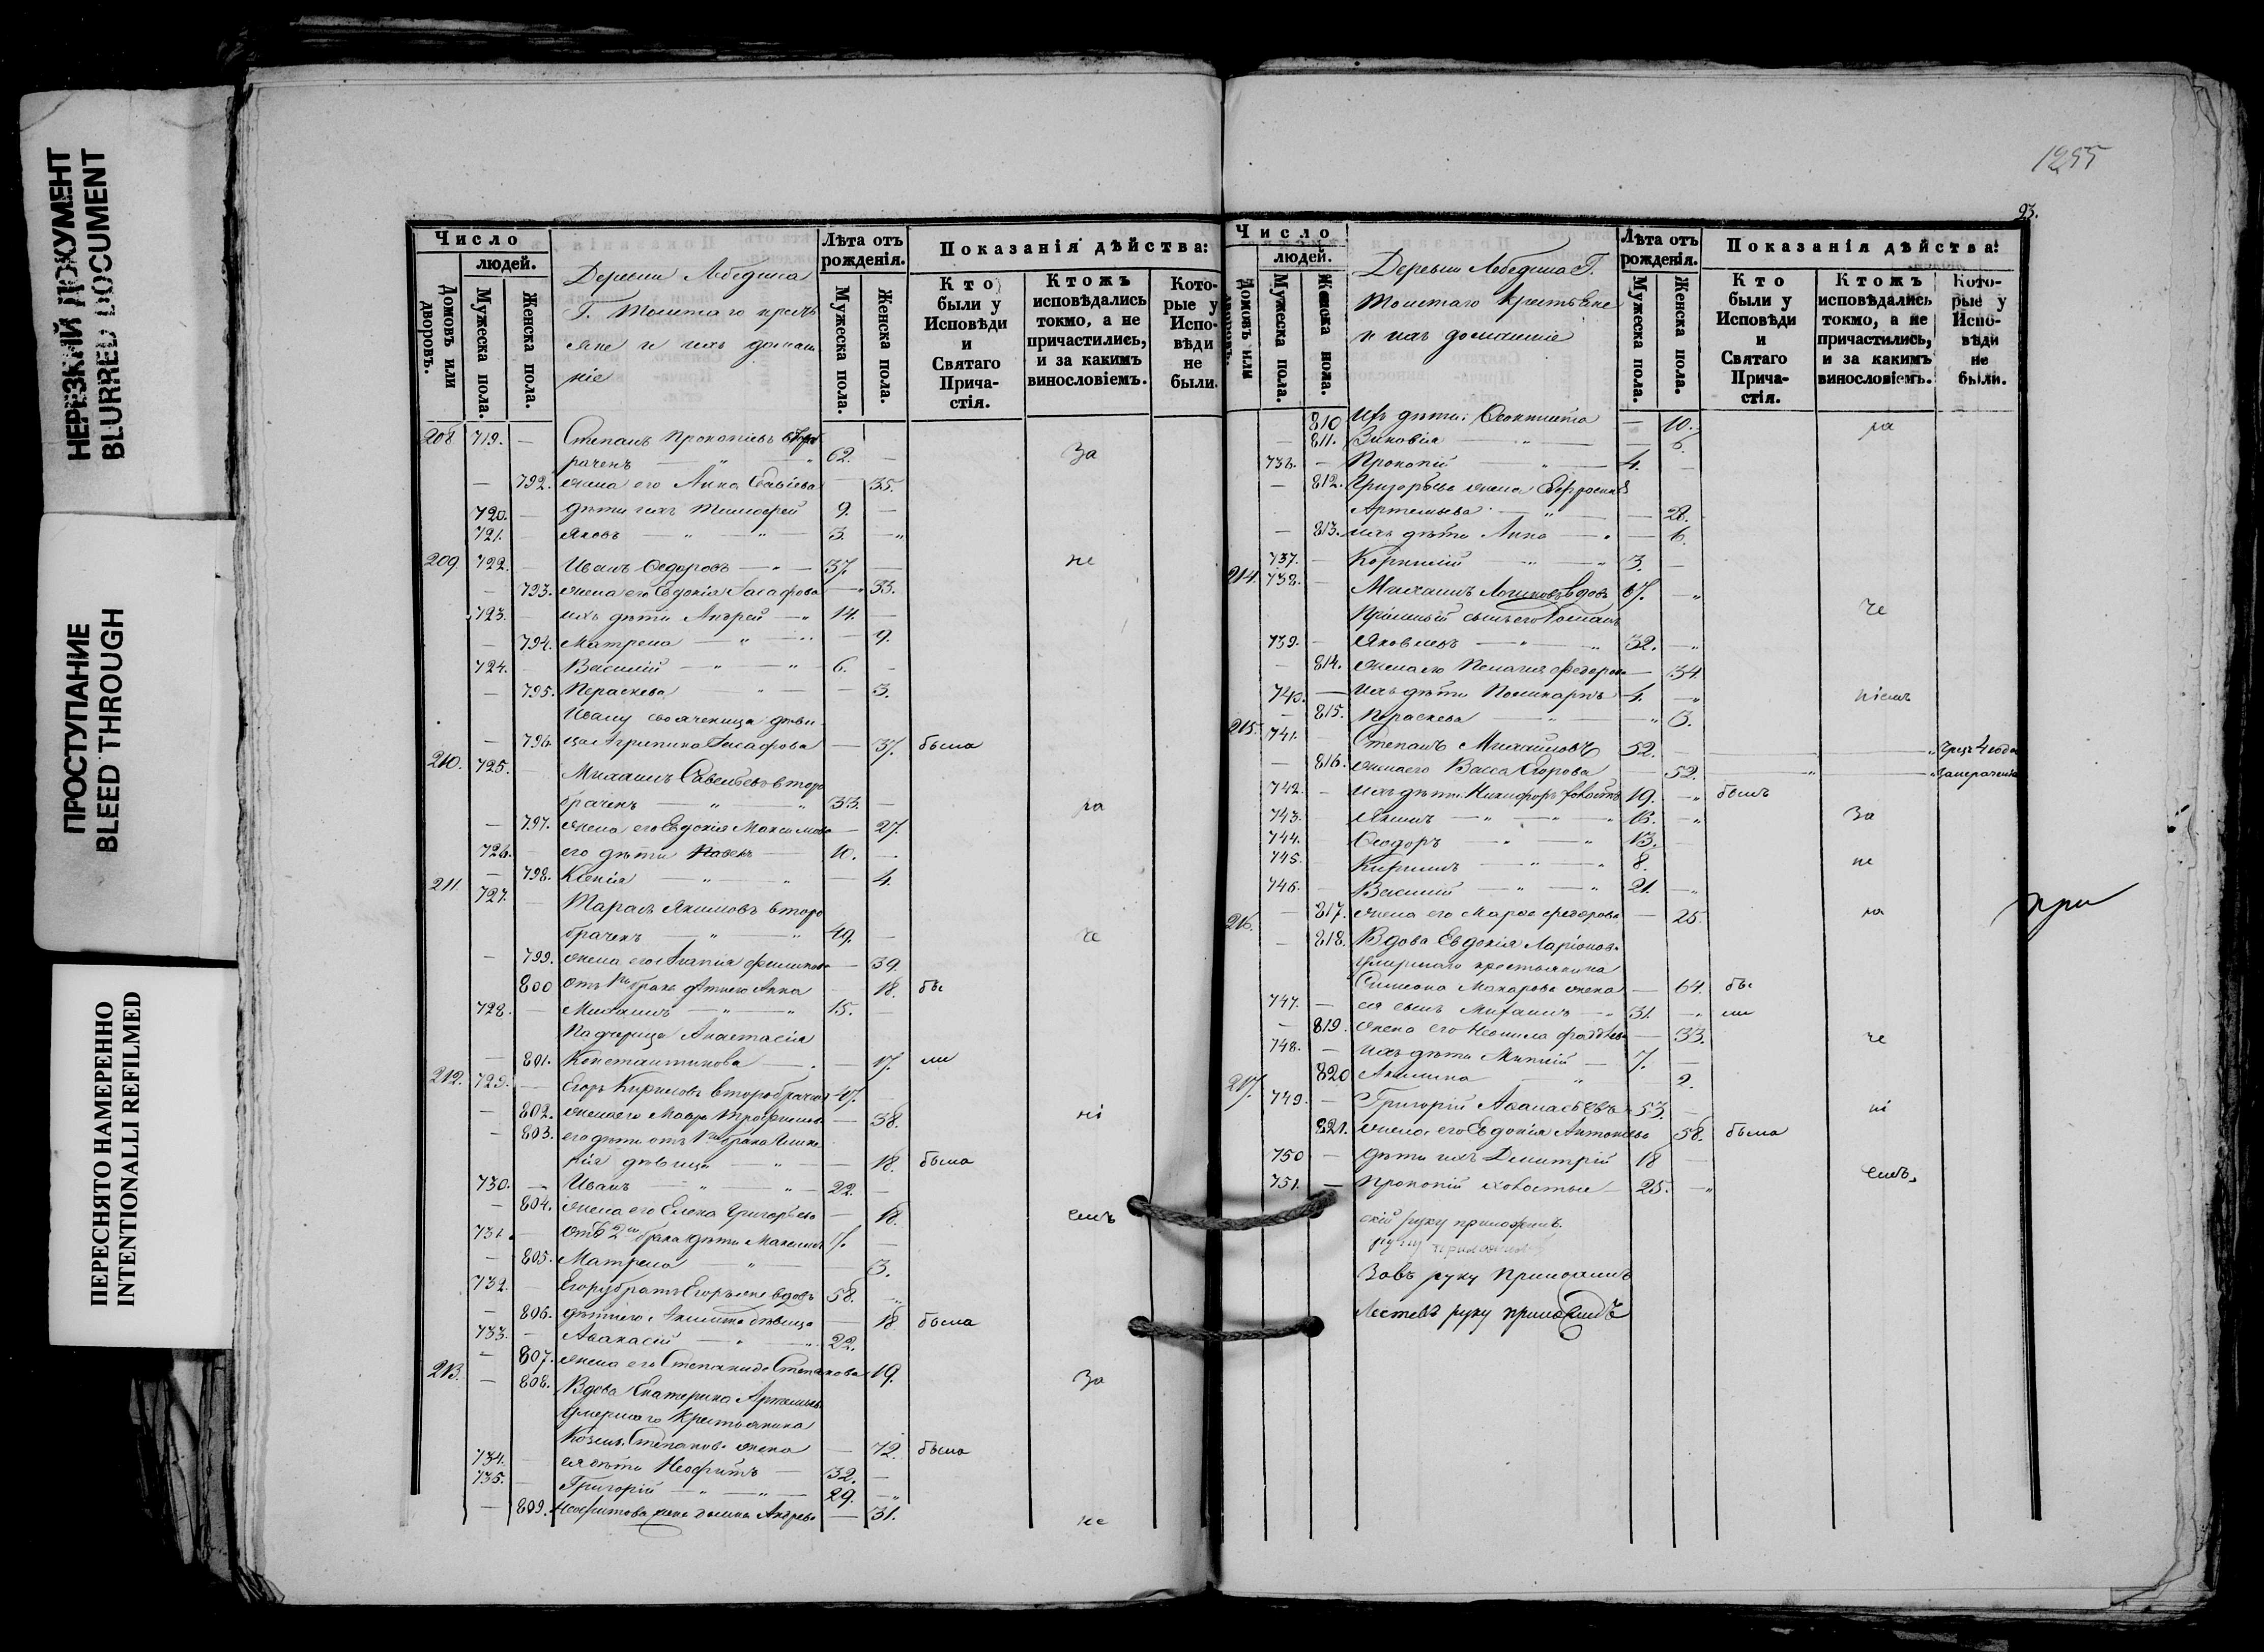 НЕРЕЗКИЙ ДОКУМЕНТ
BLURRED DOCUMENT
ПРОСТУПАНИЕ
BLEED THROUGH
ПЕРЕСНЯТО НАМЕРЕННО
INTENTIONALLI REFILMED
Число
людей.
Домовъ или дворовъ.
Мужеска пола.
Женска пола.
Деревни Лебедина
Г. Толстаго кресть
яне и ихъ домаш
ніе
Лѣта отъ рожденія.
Мужеска пола.
Женска пола.
Показанія дѣйства:
Кто были у Исповѣди и Святаго Прича-стія.
Ктожъ исповѣдались токмо, а не причастились, и за какимъ винословіемъ.
Кото-рые у Испо-вѣди не были.
208 719. — Степанъ Прокопіевъ втор
раченъ 62. — За
— 792. жена его Анна 35.
720. — дѣти ихъ Тимофей 9. —
721. Яковъ 3. —
209 722. — Иванъ Ѳедоровъ — 37. — не
— 793. жена его Евдокія — 33.
723. — ихъ дѣти Андрей — 14. —
— 794. Матрена — 9.
724. — Василій 6. —
— 795. Параскева — 3.
Ивану своячепица дѣви
— 796. ца Агрипина — 37. была
210. 725. — Михаилъ Савельевъ второ
браченъ 33. — ра
— 797. жена его Евдокія Максимова — 27.
726. — его дѣти Павелъ — 10. —
— 798. Ксенія — 4.
211. 727. — Тарасъ Якимовъ второ
браченъ 49. — че
— 799. жена его Агапія — 39.
800 отъ 1го брака дѣти его Анна — 18. бы
728. — Михаилъ 15. —
Падчерица Анастасія
— 801. Константинова — 17. ли
212. 729. — Егоръ Кириловъ второбрачен 47. —
— 802. жена его Мавра Трофимов — 38. ні
— 803. его дѣти отъ 1го брака
рія дѣвица — 18. была
730. — Иванъ 22. —
— 804. жена его Елена Григорьева — 18. емъ
731. — отъ 2го брака дѣти Максимъ 7. —
— 805. Матрена — 3.
732. — Егору братъ вдовъ 58. —
— 806. дѣти его Акилина дѣвица — 18 была
733. — Аѳанасій 22.
— 807. жена его Степанида Степанова 19.
213. — 808. Вдова Екатерина Артемьев За
умершаго Крестьянина
Козьмы Степанов. жена — 72. была
734. — ея дѣти Неофитъ — 32. —
735. — Григорій 29. —
— 809. Неофитова жена Домна Андрев — 31. не
1255
23.
Число
людей.
Домовъ или дворовъ.
Мужеска пола.
Женска пола.
Деревни Лебедина Г.
Толстаго Крестьяне
и ихъ домашніе
Лѣта отъ рожденія.
Мужеска пола.
Женска пола.
Показанія дѣйства:
Кто были у Исповѣди и Святаго Прича-стія.
Ктожъ исповѣдались токмо, а не причастились, и за какимъ винословіемъ.
Кото-рые у Испо-вѣди не были.
810 Ихъ дѣти: Ѳеоктиста — 10. ра
— 811. Зиновія — 6.
736. — Прокопій 4. —
— 812. Григорьева жена Евфросинія
Артемьева — 28.
— 813. ихъ дѣти Анна — 6.
737. — Корнилій 3. —
214. 738. — Михаилъ Логиновъ вдовъ 67. — че
Пріемный сынъ его Романъ
739. — Яковлевъ 32. —
— 814. жена его Пелагія Ѳедоров — 34
740. — Ихъ дѣти Поликарпъ 4. — ніемъ
— 815. Параскева — 3.
215. 741. Степанъ Михайловъ 52. — чрезъ 4 года
— 816. жена его Васса Егорова — 52.
742. — ихъ дѣти Никифоръ холостъ 19. — былъ
743. — Якимъ 16. — За
744. Ѳеодоръ 13. —
745. Кирилъ 8. не
746. — Василій 21 —
— 817. жена его Марѳа Ѳедорова — 25. ра
216. — 818. Вдова Евдокія Ларіонов.
умершаго крестьянина
Симеона Макарова жена — 64. бы
747. — ея сынъ Михаилъ 31. — ли
— 819. жена его Неонила — 33. че
748. — ихъ дѣти — 7. —
820 Акилина — 2.
217. 749. — Григорій Аѳанасьевъ 53. — ні
821. жена его Евдокія Антоньева 58. была
750 — дѣти ихъ Димитрій 18 —
751. — Прокопій холостые — 25. — емъ.
при
скій руку приложилъ
зовъ руку Приложилъ
руку приложилъ